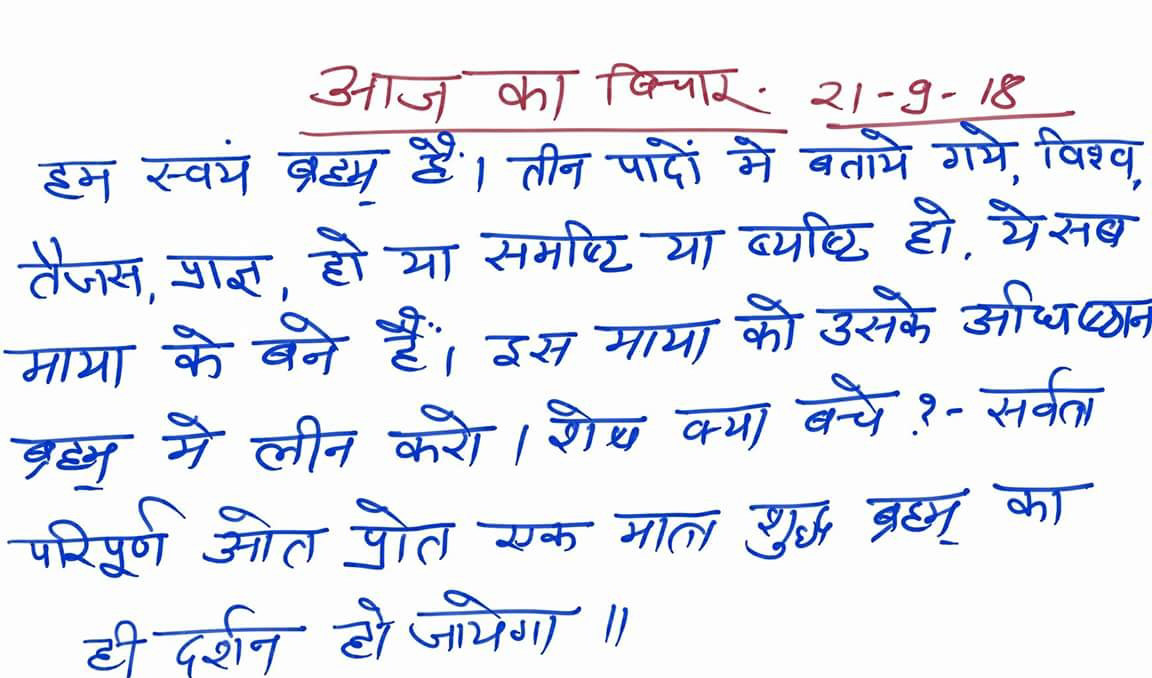 आज का विचार. 21-9-18
हम स्वयं ब्रहम् हैं। तीन पादों मे बताये गये, विश्व,
तैजस, प्राज्ञ, हो या समष्टि या ब्यष्टि हो. ये सब
माया के बने हैं। इस माया को उसके अधिष्ठान
ब्रहम् मे लीन करो। शेष क्या बचे ?- सर्वत्र
परिपूर्ण ओत प्रोत एक मात्र शुद्ध ब्रहम् का
ही दर्शन हो जायेगा॥